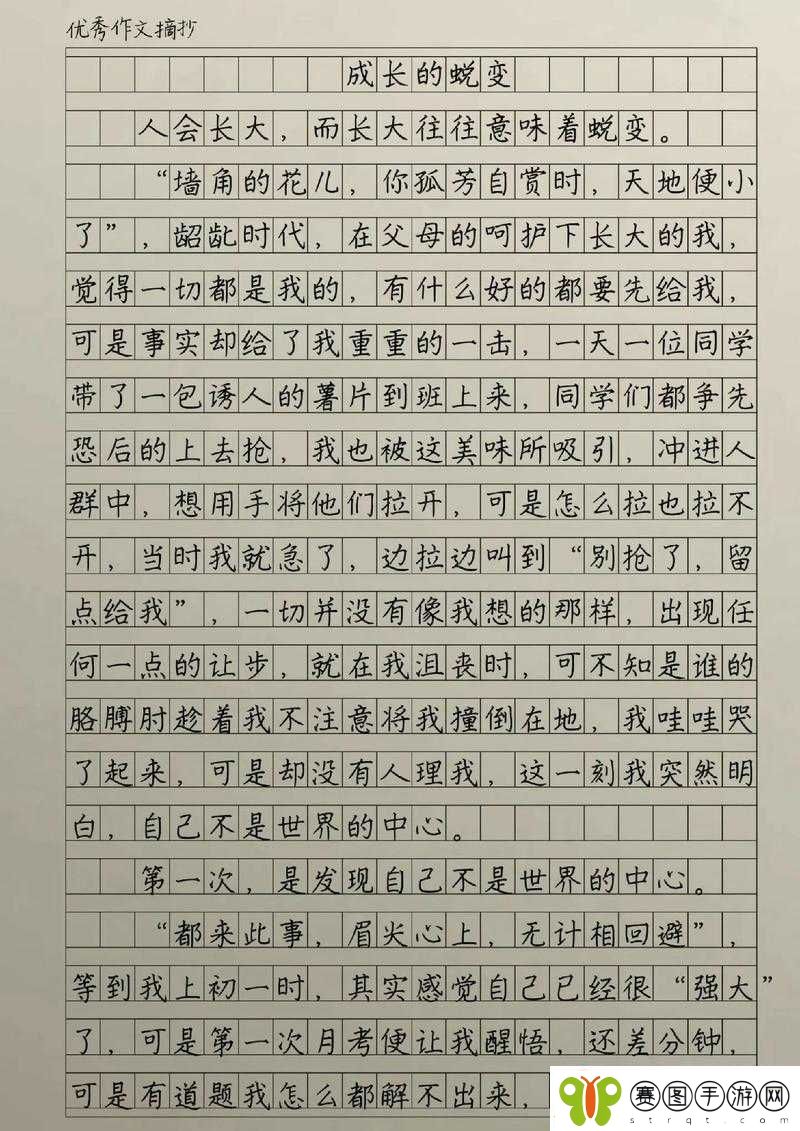 优秀作文摘抄
成长的蜕变
人会长大，而长大往往意味着蜕变。
“墙角的花儿，你孤芳自赏时，天地便小
了”，龆龀时代，在父母的呵护下长大的我，
觉得一切都是我的，有什么好的都要先给我，
可是事实却给了我重重的一击，一天一位同学
带了一包诱人的薯片到班上来，同学们都争先
恐后的上去抢，我也被这美味所吸引，冲进人
群中，想用手将他们拉开，可是怎么拉也拉不
开，当时我就急了，边拉边叫到“别抢了，留
点给我”，一切并没有像我想的那样，出现任
何一点的让步，就在我沮丧时，可不知是谁的
胳膊肘趁着我不注意将我撞倒在地，我哇哇哭
了起来，可是却没有人理我，这一刻我突然明
白，自己不是世界的中心。
第一次，是发现自己不是世界的中心。
“都来此事，眉尖心上，无计相回避”，
等到我上初一时，其实感觉自己已经很“强大”
了，可是第一次月考便让我醒悟，还差分钟，
可是有道题我怎么都解不出来，
赛图手游网
strqt.com